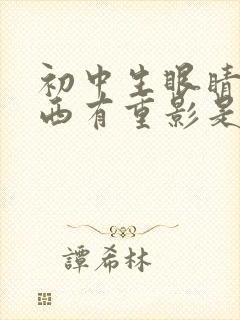 初中生眼睛
西有重影是
譚希林